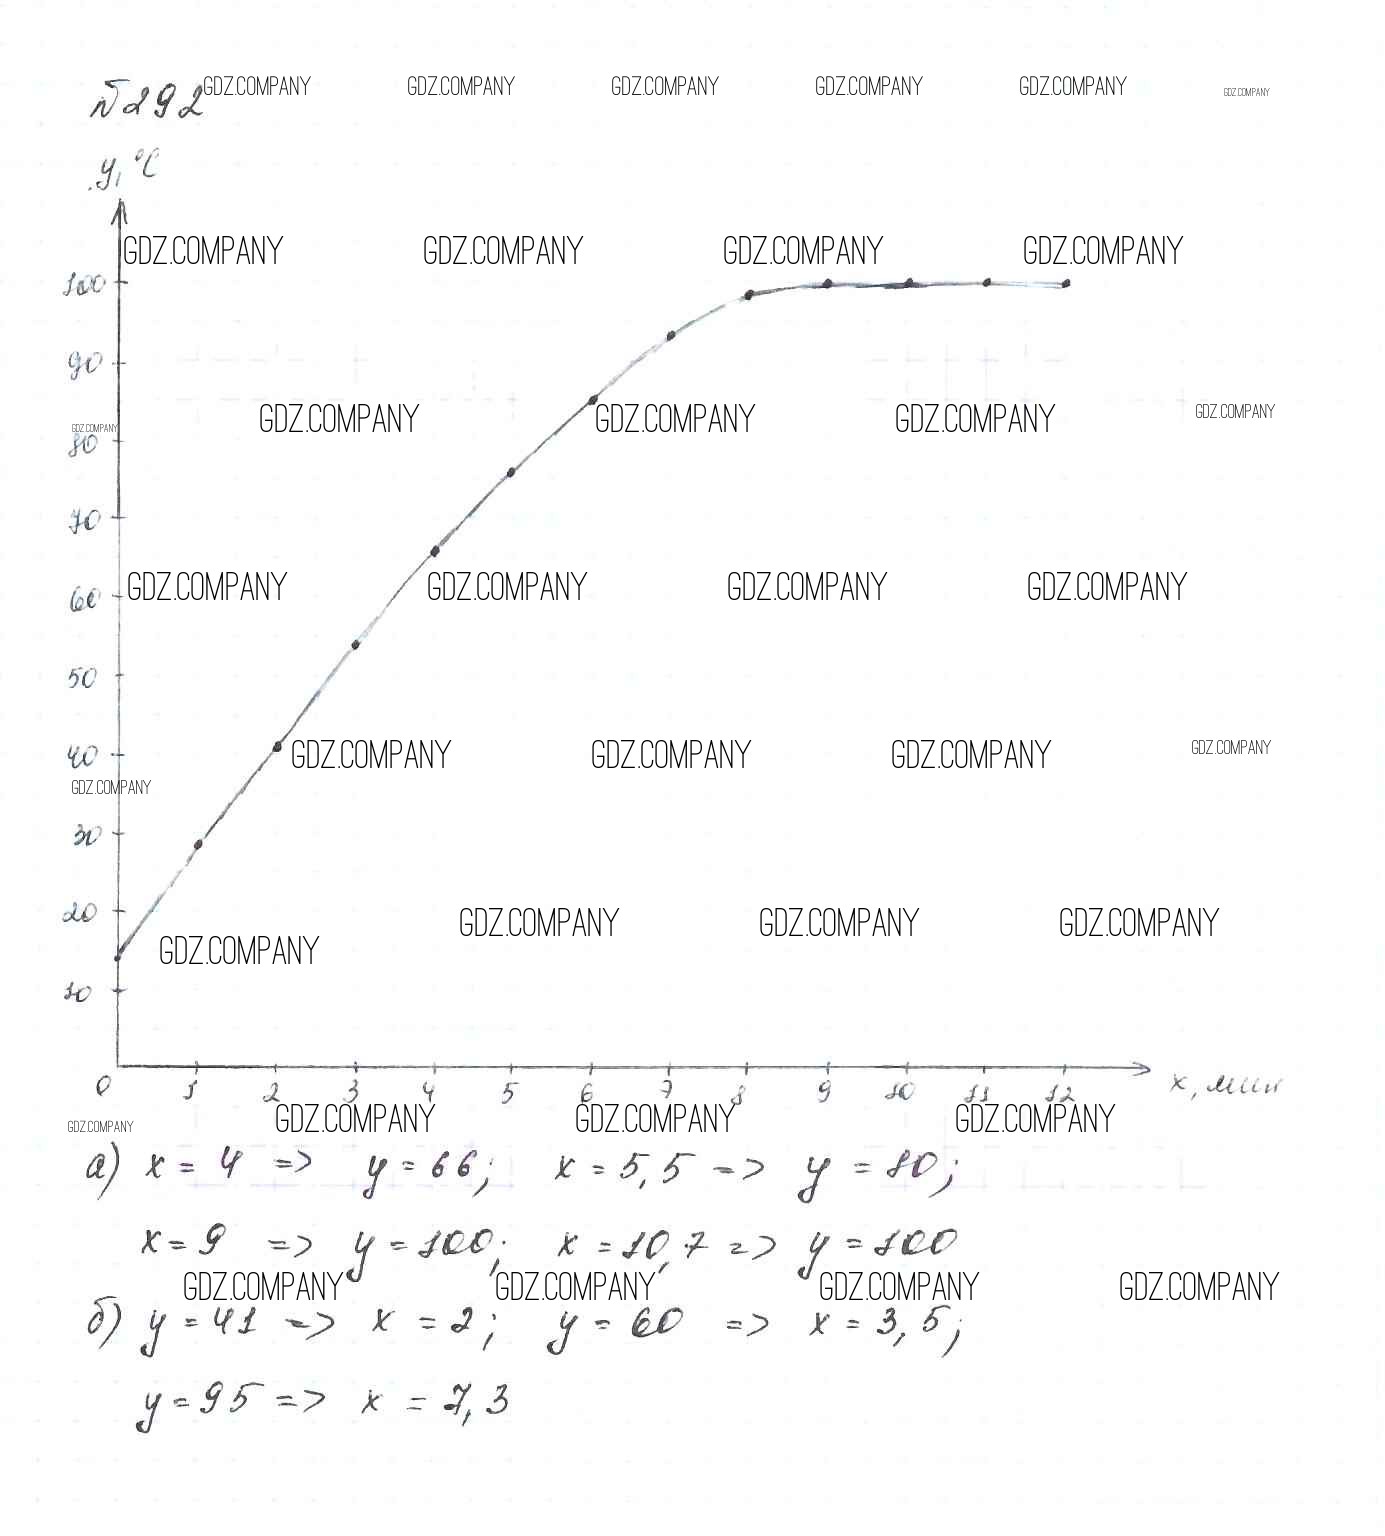 №292 GDZ.COMPANY GDZ.COMPANY GDZ.COMPANY GDZ.COMPANY GDZ.COMPANY GDZ.COMPANY
y, °C
GDZ.COMPANY GDZ.COMPANY GDZ.COMPANY GDZ.COMPANY
100
90
GDZ.COMPANY GDZ.COMPANY GDZ.COMPANY GDZ.COMPANY
GDZ.COMPANY
80
70
60 GDZ.COMPANY GDZ.COMPANY GDZ.COMPANY GDZ.COMPANY
50
40 GDZ.COMPANY GDZ.COMPANY GDZ.COMPANY GDZ.COMPANY
GDZ.COMPANY
30
20 GDZ.COMPANY GDZ.COMPANY GDZ.COMPANY
GDZ.COMPANY
10
0 1 2 3 4 5 6 7 8 9 10 11 12 x, мин
GDZ.COMPANY GDZ.COMPANY GDZ.COMPANY GDZ.COMPANY
а) x = 4 => y = 66; x = 5,5 => y = 80;
x = 9 => y = 100; x = 10,7 => y = 100
GDZ.COMPANY GDZ.COMPANY GDZ.COMPANY GDZ.COMPANY
б) y = 41 => x = 2; y = 60 => x = 3,5;
y = 95 => x = 7,3